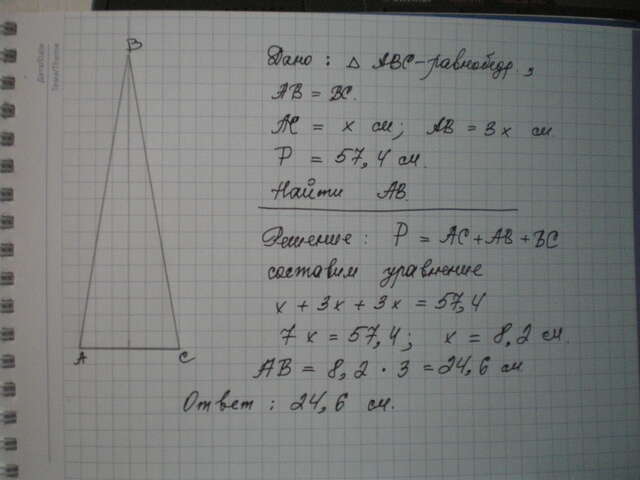 Дата/Date
Тема/Theme
B
A
C
Дано: △ ABC-равнобедр.,
AB = BC.
AC = x см; AB = 3x см.
P = 57,4 см.
Найти AB.
Решение: P = AC+AB+BC
составим уравнение
x + 3x + 3x = 57,4
7x = 57,4; x = 8,2 см.
AB = 8,2 · 3 = 24,6 см
Ответ: 24,6 см.